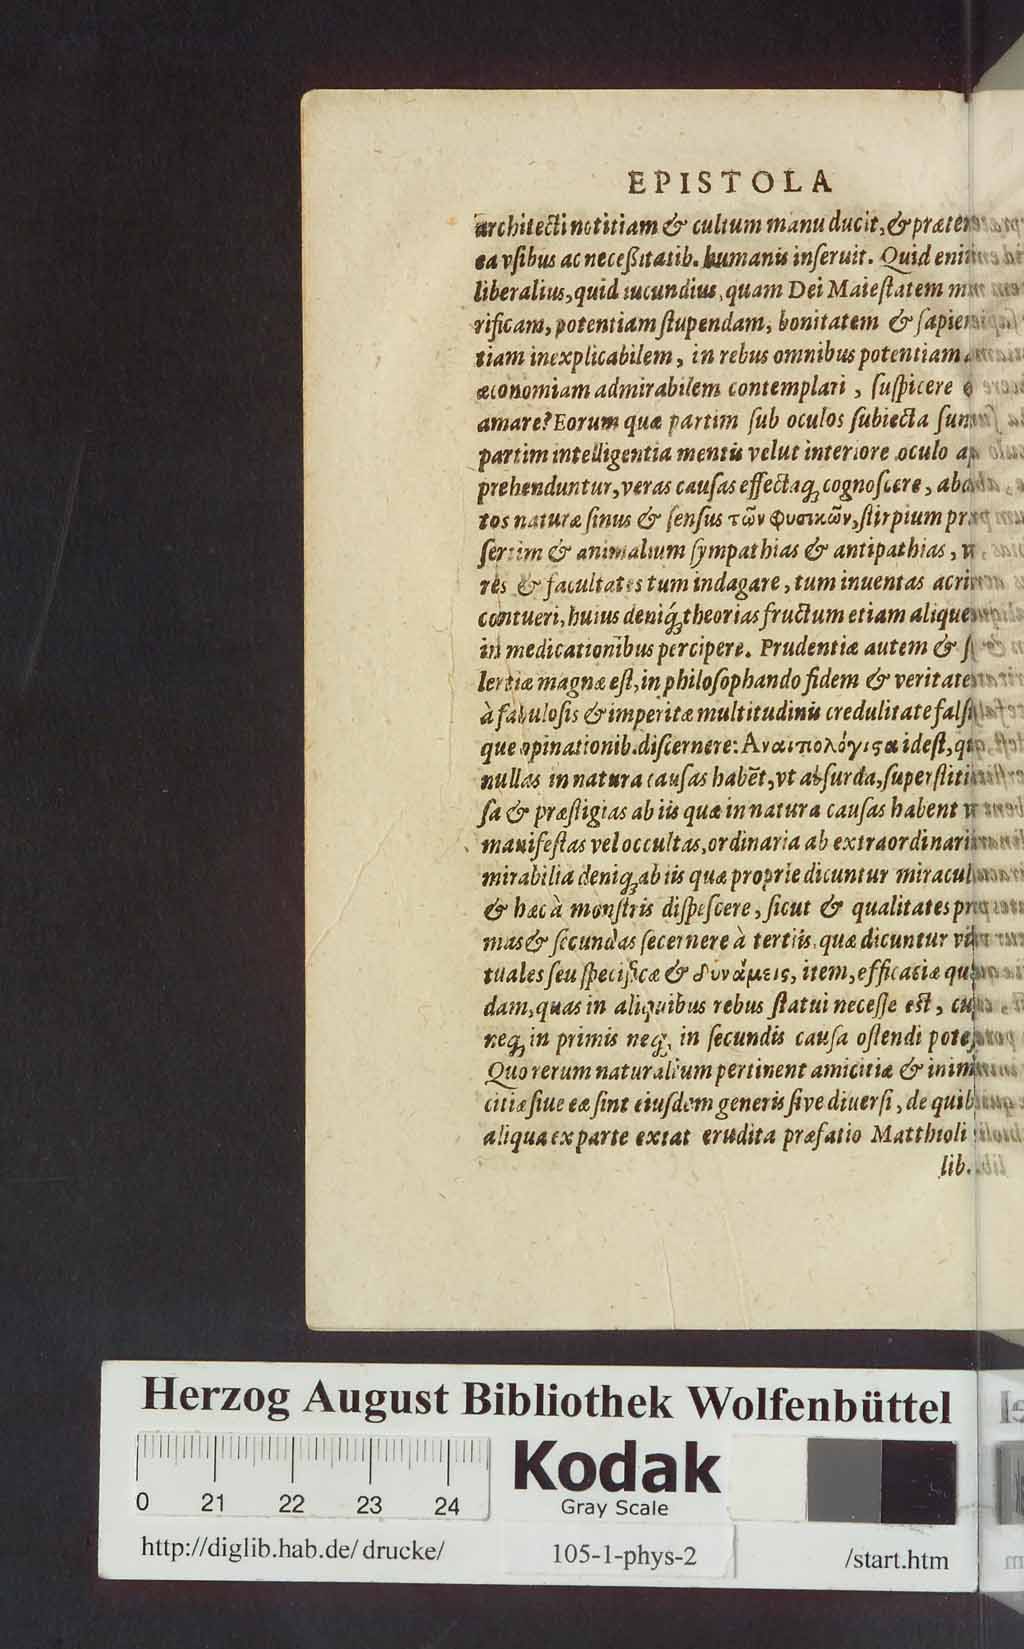 EPISTOLA
architecti notitiam & cultum manu ducit, & præter
ea vſibus ac neceßitatib. humanis inſeruit. Quid enim
liberalius, quid iucundius, quam Dei Maieſtatem mi
rificam, potentiam ſtupendam, bonitatem & ſapien
tiam inexplicabilem, in rebus omnibus potentiam
œconomiam admirabilem contemplari, ſuſpicere
amare? Eorum quæ partim ſub oculos ſubiecta ſunt
partim intelligentia mentis velut interiore oculo ap
prehenduntur, veras cauſas effectaq; cognoſcere, abdi
tos naturæ ſinus & ſenſus τῶν φυσικῶν, ſtirpium præ
ſertim & animalium ſympathias & antipathias, vi
res & facultates tum indagare, tum inuentas acrius
contueri, huius deniq́; theorias fructum etiam aliquem
in medicationibus percipere. Prudentiæ autem & ſo
lertiæ magnæ eſt, in philoſophando fidem & veritatem
à fabuloſis & imperitæ multitudinis credulitate falſiſ
que opinationib. diſcernere: Αναιτιολόγιϛα ideſt, quæ
nullas in natura cauſas habēt, vt abſurda, ſuperſtitio
ſa & præſtigias ab iis quæ in natura cauſas habent
manifeſtas vel occultas, ordinaria ab extraordinariis
mirabilia deniq; ab iis quæ proprie dicuntur miracula
& hæc à monſtris diſpeſcere, ſicut & qualitates pri
mas & ſecundas ſecernere à tertiis, quæ dicuntur vir
tuales ſeu ſpecificæ & δυνάμεις, item, efficaciæ quæ
dam, quas in aliquibus rebus ſtatui neceſſe eſt, cum
neq; in primis neq; in ſecundis cauſa oſtendi poteſt
Quo rerum naturalium pertinent amicitiæ & inimi
citiæ ſiue eæ ſint eiuſdem generis ſive diuerſi, de quib.
aliqua ex parte extat erudita præfatio Matthioli
lib.
Herzog August Bibliothek Wolfenbüttel
0 21 22 23 24
Kodak
Gray Scale
http://diglib.hab.de/drucke/ 105-1-phys-2 /start.htm